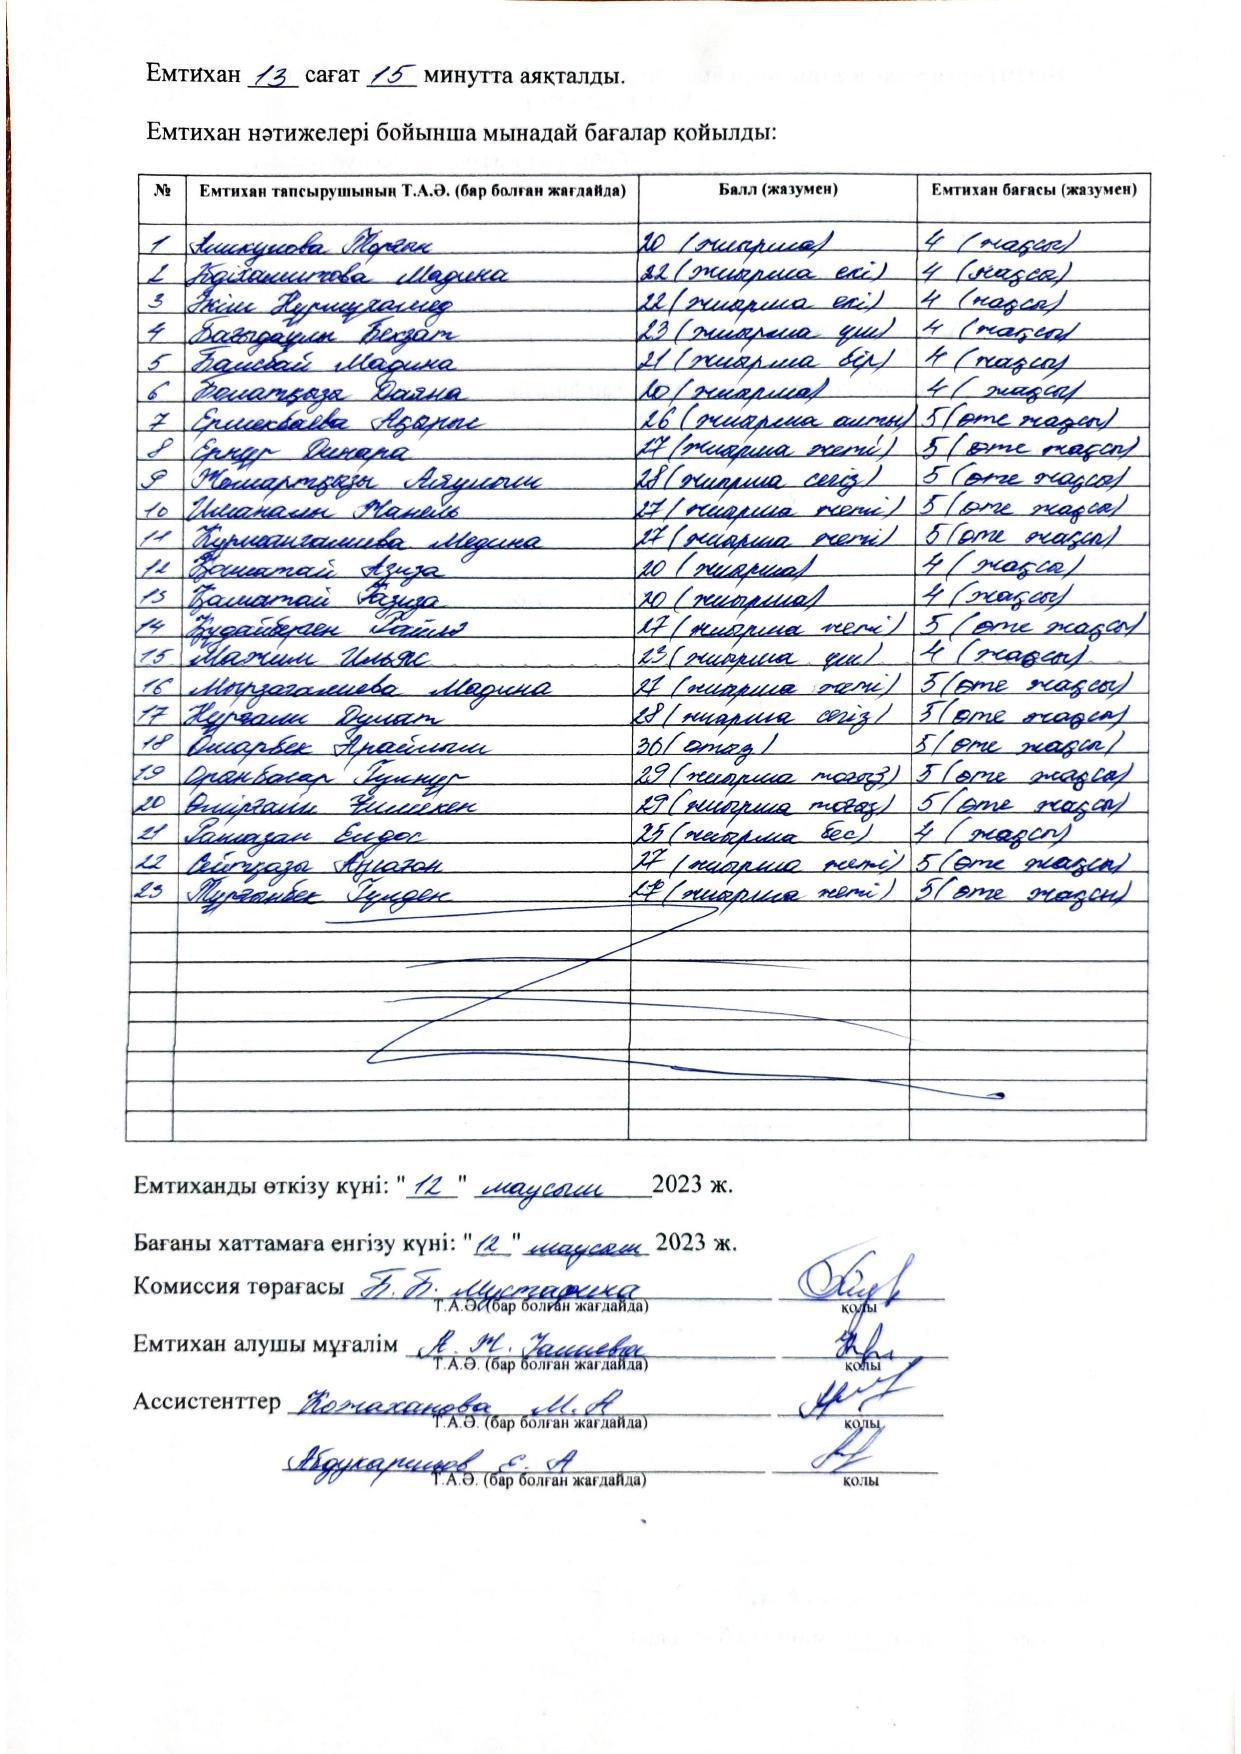 Емтихан 13 сағат 15 минутта аяқталды.
Емтихан нәтижелері бойынша мынадай бағалар қойылды:
№ Емтихан тапсырушының Т.А.Ә. (бар болған жағдайда) Балл (жазумен) Емтихан бағасы (жазумен)
1 20 (жиырма) 4 (жақсы)
2 Мадина 22 (жиырма екі) 4 (жақсы)
3 Әкім Нурмухамед 22 (жиырма екі) 4 (жақсы)
4 Бағыдаулы Бекзат 23 (жиырма үш) 4 (жақсы)
5 Байсбай Мадина 21 (жиырма бір) 4 (жақсы)
6 Болатқызы Даяна 20 (жиырма) 4 (жақсы)
7 Ермекбаева Ақарыс 26 (жиырма алты) 5 (өте жақсы)
8 Ернұр Динара 27 (жиырма жеті) 5 (өте жақсы)
9 Жомартқызы Аяулым 28 (жиырма сегіз) 5 (өте жақсы)
10 Иманалы Жанель 27 (жиырма жеті) 5 (өте жақсы)
11 Курмангалиева Медина 27 (жиырма жеті) 5 (өте жақсы)
12 Қаматай Азиза 20 (жиырма) 4 (жақсы)
13 Қаматай Газиза 20 (жиырма) 4 (жақсы)
14 Құдайберген 27 (жиырма жеті) 5 (өте жақсы)
15 Мажим Ильяс 23 (жиырма үш) 4 (жақсы)
16 Мырзагалиева Мадина 27 (жиырма жеті) 5 (өте жақсы)
17 Нұрғали Думат 28 (жиырма сегіз) 5 (өте жақсы)
18 Омарбек Арайлым 30 (отыз) 5 (өте жақсы)
19 Оранбасар Гүлнұр 29 (жиырма тоғыз) 5 (өте жақсы)
20 Өмірғали 29 (жиырма тоғыз) 5 (өте жақсы)
21 Рамазан Елдос 25 (жиырма бес) 4 (жақсы)
22 Сейтқазы 27 (жиырма жеті) 5 (өте жақсы)
23 Тұрғынбек Гүлден 27 (жиырма жеті) 5 (өте жақсы)
Емтиханды өткізу күні: "12" маусым 2023 ж.
Бағаны хаттамаға енгізу күні: "12" маусым 2023 ж.
Комиссия төрағасы Б. Б. Мустафина
Т.А.Ә. (бар болған жағдайда) қолы
Емтихан алушы мұғалім А. Ж.
Т.А.Ә. (бар болған жағдайда) қолы
Ассистенттер Кожаханова М. А
Т.А.Ә. (бар болған жағдайда) қолы
Абдукаримов Е. А
Т.А.Ә. (бар болған жағдайда) қолы